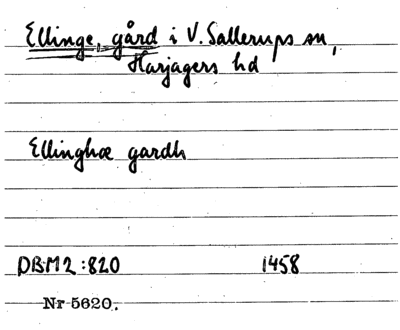 Ellinge, gård i V. Sallerups sn,
Harjagers hd
Ellinghæ gardh
DBM2:820 1458
Nr 5620.